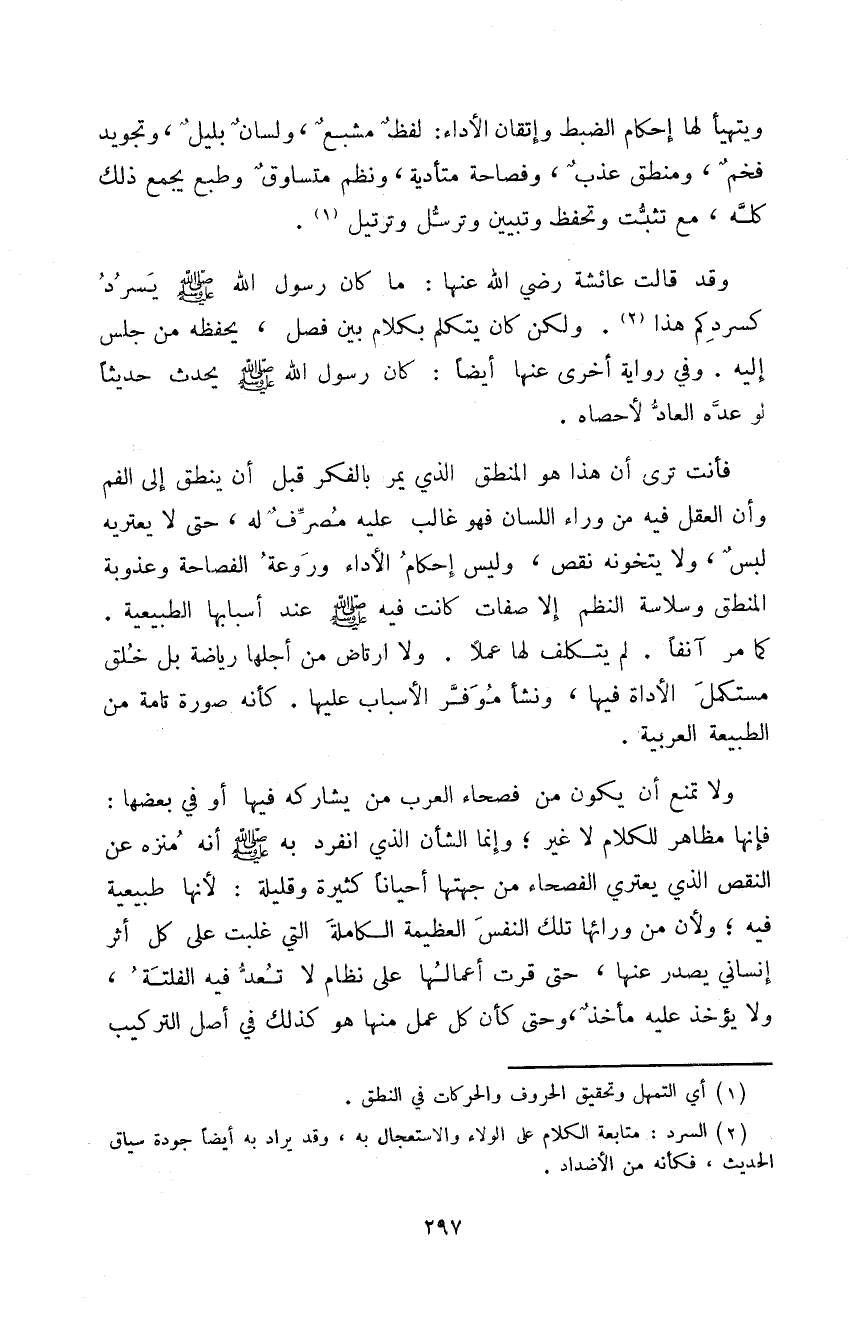 ويتهيأ لها إحكام الضبط وإتقان الأداء: لفظٌ مشبعٌ ، ولسانٌ بليلٌ ، وتجويد
فخمٌ ، ومنطق عذبٌ ، وفصاحة متأدية ، ونظم متساوقٌ وطبع يجمع ذلك
كلَّه ، مع تثبُّت وتحفظ وتبيين وترسُّل وترتيل (١) .
وقد قالت عائشة رضي الله عنها : ما كان رسول الله ﷺ يَسرُدُ
كسردِكم هذا (٢) . ولكن كان يتكلم بكلام بين فصل ، يحفظه من جلس
إليه . وفي رواية أخرى عنها أيضاً : كان رسول الله ﷺ يحدث حديثاً
لو عدَّه العادُّ لأحصاه .
فأنت ترى أن هذا هو المنطق الذي يمر بالفكر قبل أن ينطق إلى الفم
وأن العقل فيه من وراء اللسان فهو غالب عليه مُصرِّفٌ له ، حتى لا يعتريه
لبسٌ ، ولا يتخونه نقص ، وليس إحكامُ الأداء ورَوعةُ الفصاحة وعذوبة
المنطق وسلاسة النظم إلا صفات كانت فيه ﷺ عند أسبابها الطبيعية .
كما مر آنفاً . لم يتكلف لها عملًا . ولا ارتاض من أجلها رياضة بل خُلق
مستكملَ الأداة فيها ، ونشأ مُوَفَّر الأسباب عليها . كأنه صورة تامة من
الطبيعة العربية .
ولا تمنع أن يكون من فصحاء العرب من يشاركه فيها أو في بعضها :
فإنها مظاهر للكلام لا غير ؛ وإنما الشأن الذي انفرد به ﷺ أنه مُنزه عن
النقص الذي يعتري الفصحاء من جهتها أحياناً كثيرة وقليلة : لأنها طبيعية
فيه ؛ ولأن من ورائها تلك النفسَ العظيمة الكاملةَ التي غلبت على كل أثر
إنساني يصدر عنها ، حتى قرت أعمالُها على نظام لا تُعدُّ فيه الفلتةُ ،
ولا يؤخذ عليه مأخذٌ ، وحتى كأن كل عمل منها هو كذلك في أصل التركيب
(١) أي التمهل وتحقيق الحروف والحركات في النطق .
(٢) السرد : متابعة الكلام على الولاء والاستعجال به ، وقد يراد به أيضاً جودة سياق
الحديث ، فكأنه من الأضداد .
٢٩٧